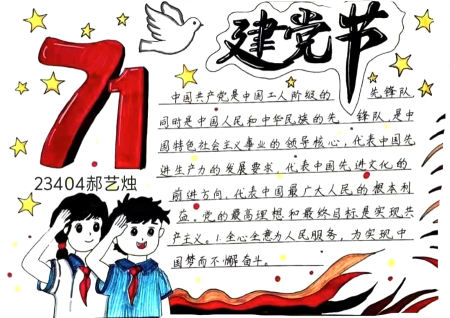 71
建党节
中国共产党是中国工人阶级的先锋队
同时是中国人民和中华民族的先锋队,是中
国特色社会主义事业的领导核心,代表中国先
进生产力的发展要求,代表中国先进文化的
前进方向,代表中国最广大人民的根本利
益。党的最高理想和最终目标是实现共
产主义。1.全心全意为人民服务,为实现中
国梦而不懈奋斗。
23404郝艺烛